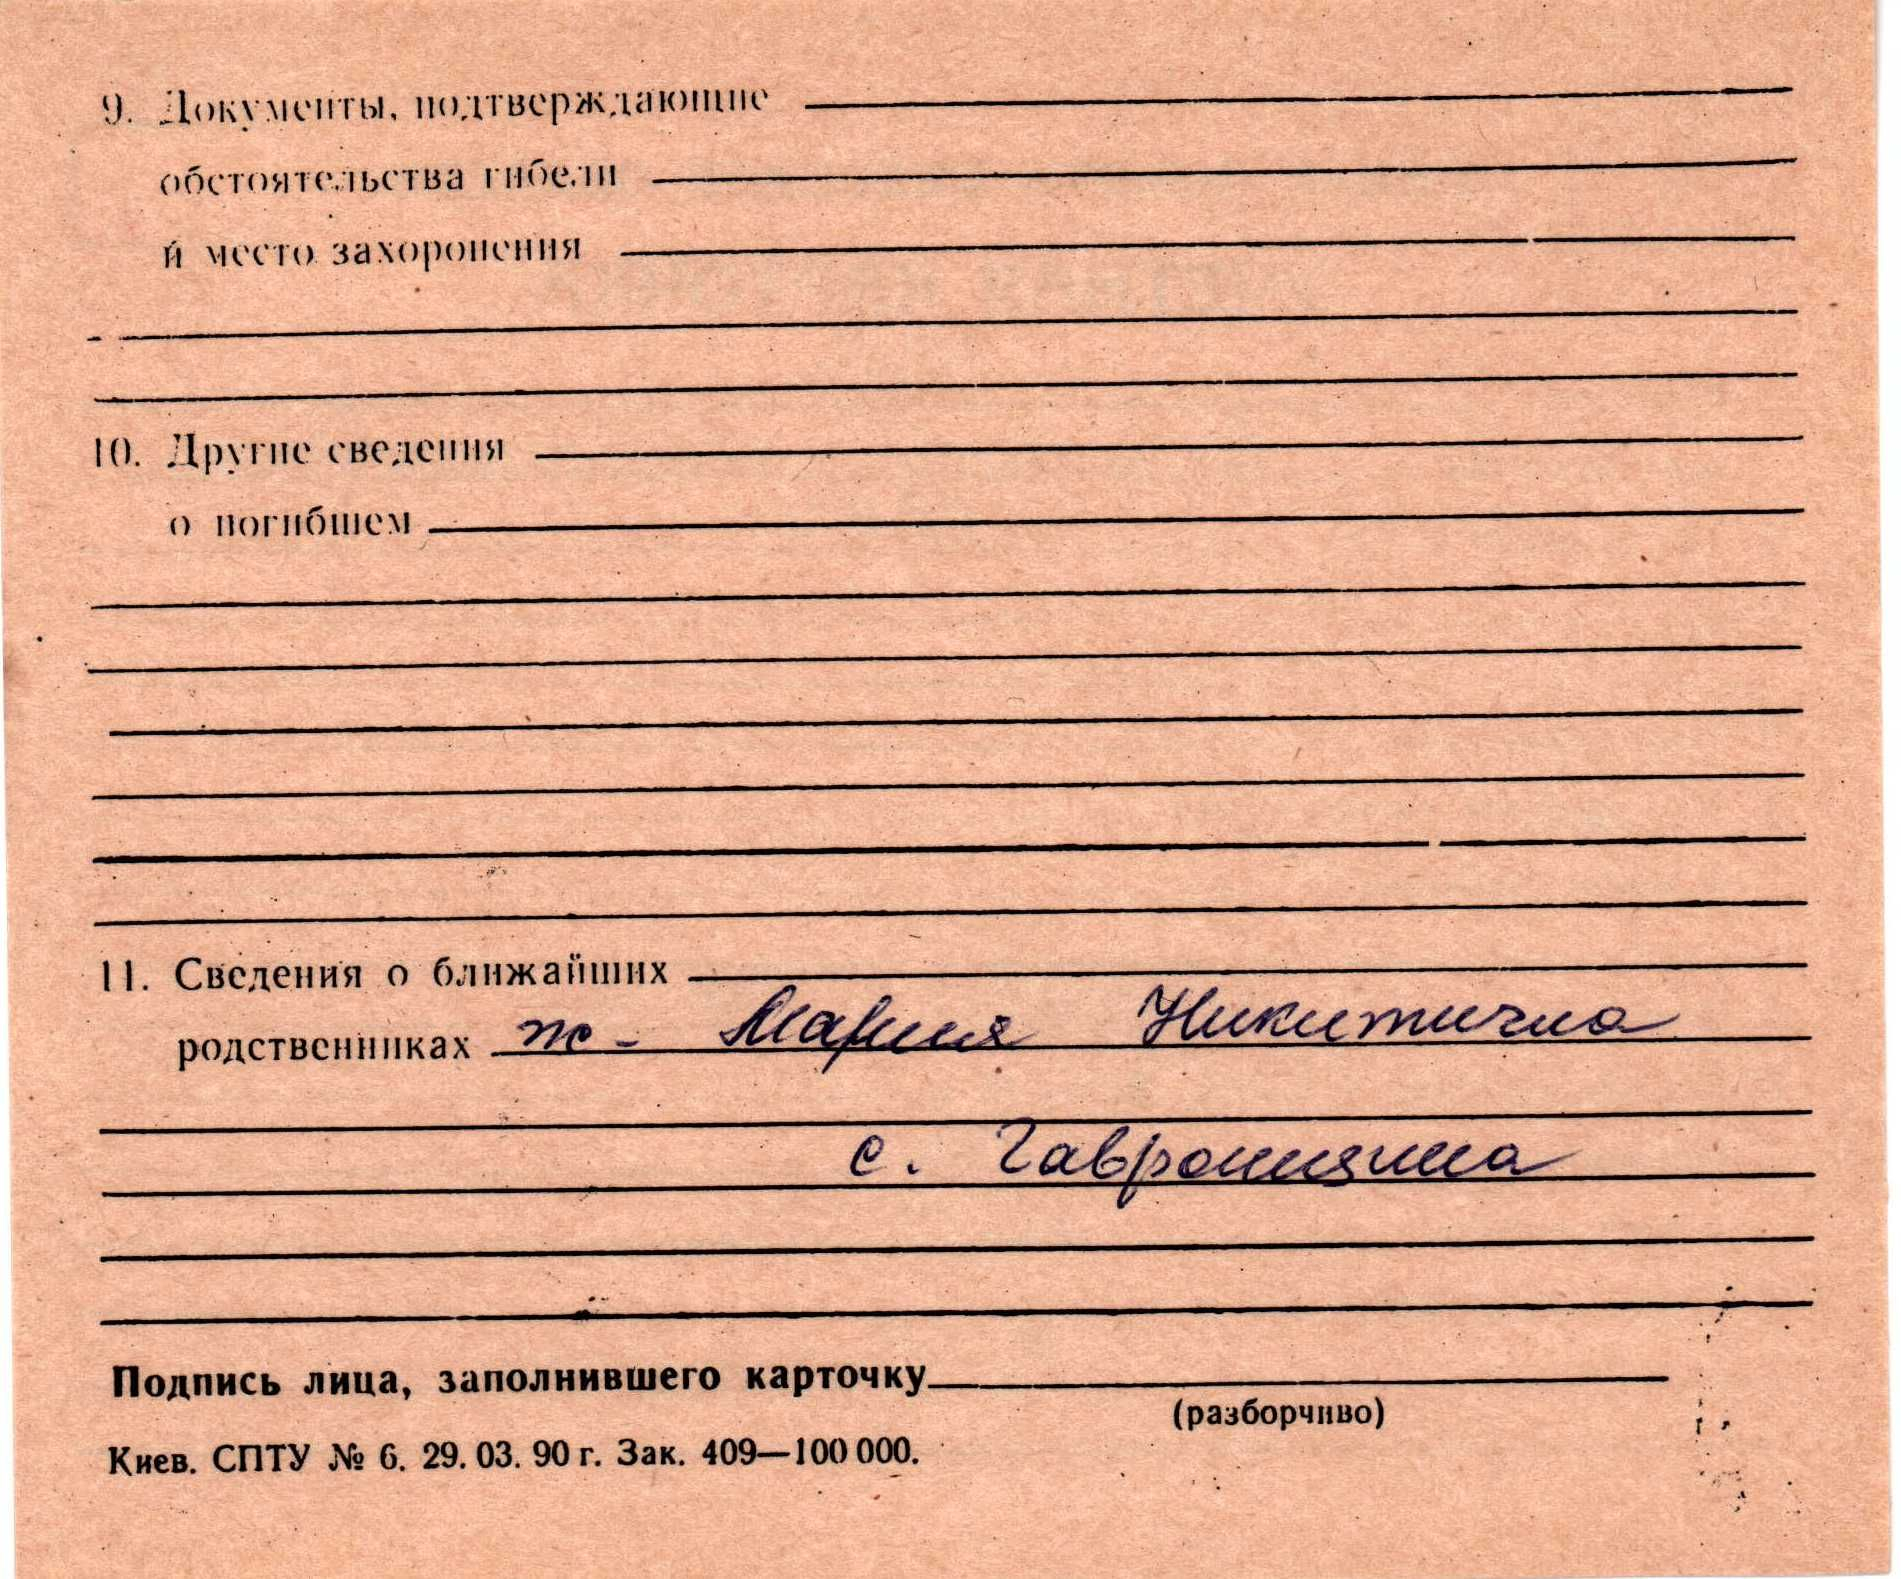 9. Документы, подтверждающие
обстоятельства гибели
и место захоронения
10. Другие сведения
о погибшем
11. Сведения о ближайших
родственниках ж - Мария Никитична
с.
Подпись лица, заполнившего карточку
(разборчиво)
Киев. СПТУ № 6. 29. 03. 90 г. Зак. 409—100 000.